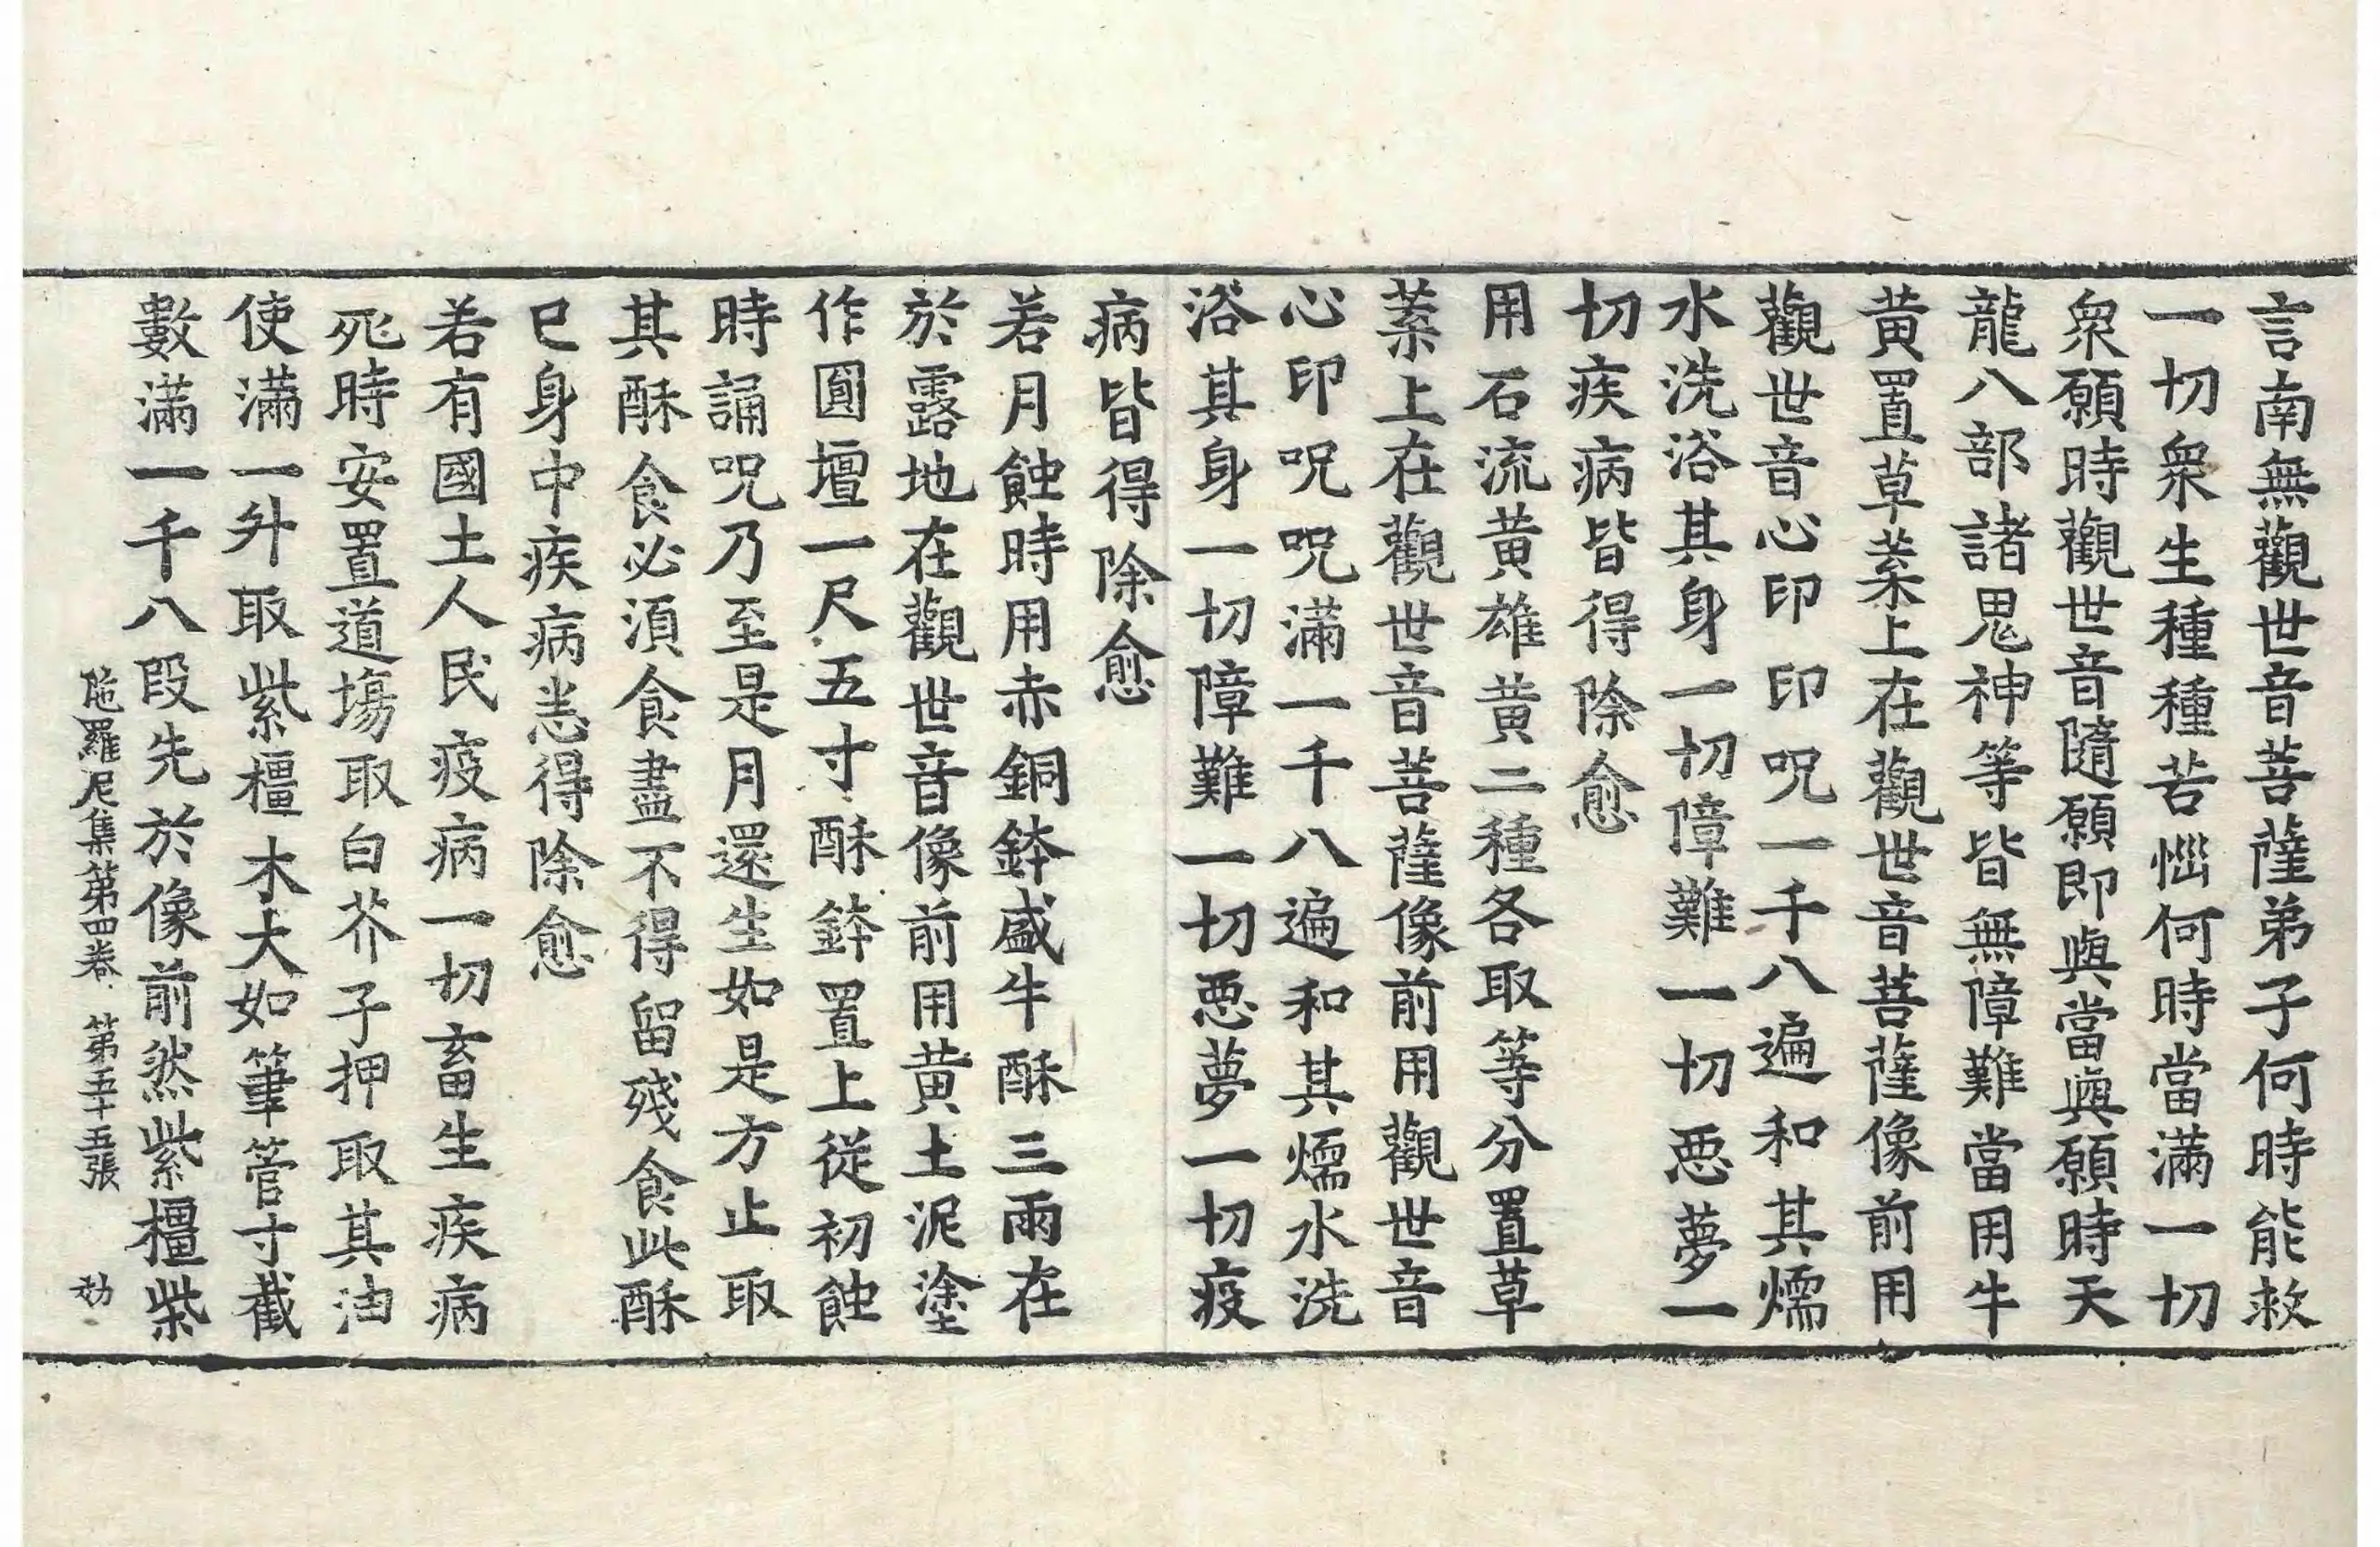 言南無觀世音菩薩弟子何時能救
一切衆生種種苦惱何時當滿一切
衆願時觀世音隨願即與當與願時天
龍八部諸鬼神等皆無障難當用牛
黃置草葉上在觀世音菩薩像前用
觀世音心印印呪一千八遍和其燸
水洗浴其身一切障難一切惡夢一
切疾病皆得除愈
用石流黃雄黃二種各取等分置草
葉上在觀世音菩薩像前用觀世音
心印呪呪滿一千八遍和其燸水洗
浴其身一切障難一切惡夢一切疫
病皆得除愈
若月蝕時用赤銅鉢盛牛酥三兩在
於露地在觀世音像前用黃土泥塗
作圓壇一尺五寸酥鉢置上從初蝕
時誦呪乃至是月還生如是方止取
其酥食必須食盡不得留殘食此酥
已身中疾病悉得除愈
若有國土人民疫病一切畜生疾病
死時安置道場取白芥子押取其油
使滿一升取紫橿木大如筆管寸截
數滿一千八段先於像前然紫橿柴
陁羅尼集第四卷 第五十五張 劾